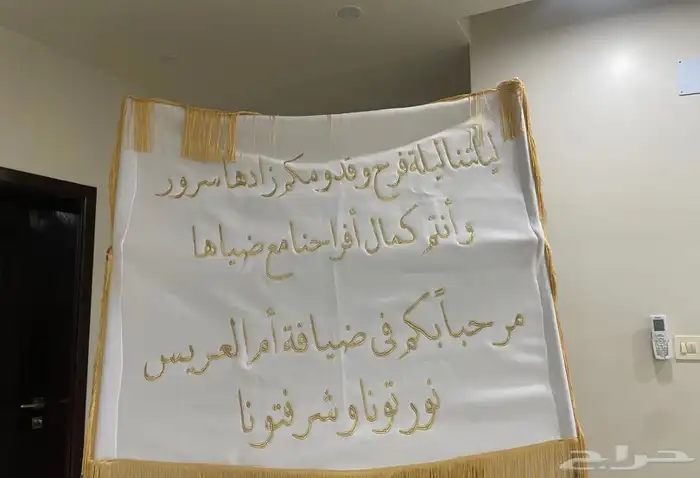 ليلتنا ليلة فرح وقدومكم زادها سرور
وأنتم كمال أفراحنا مع ضياها
مرحباً بكم في ضيافة أم العريس
نورتونا وشرفتونا
حراج